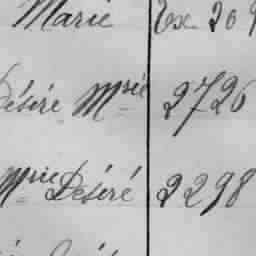 Marie Ex. 209
Désiré Mrie 2726
Mrie Désiré 2298